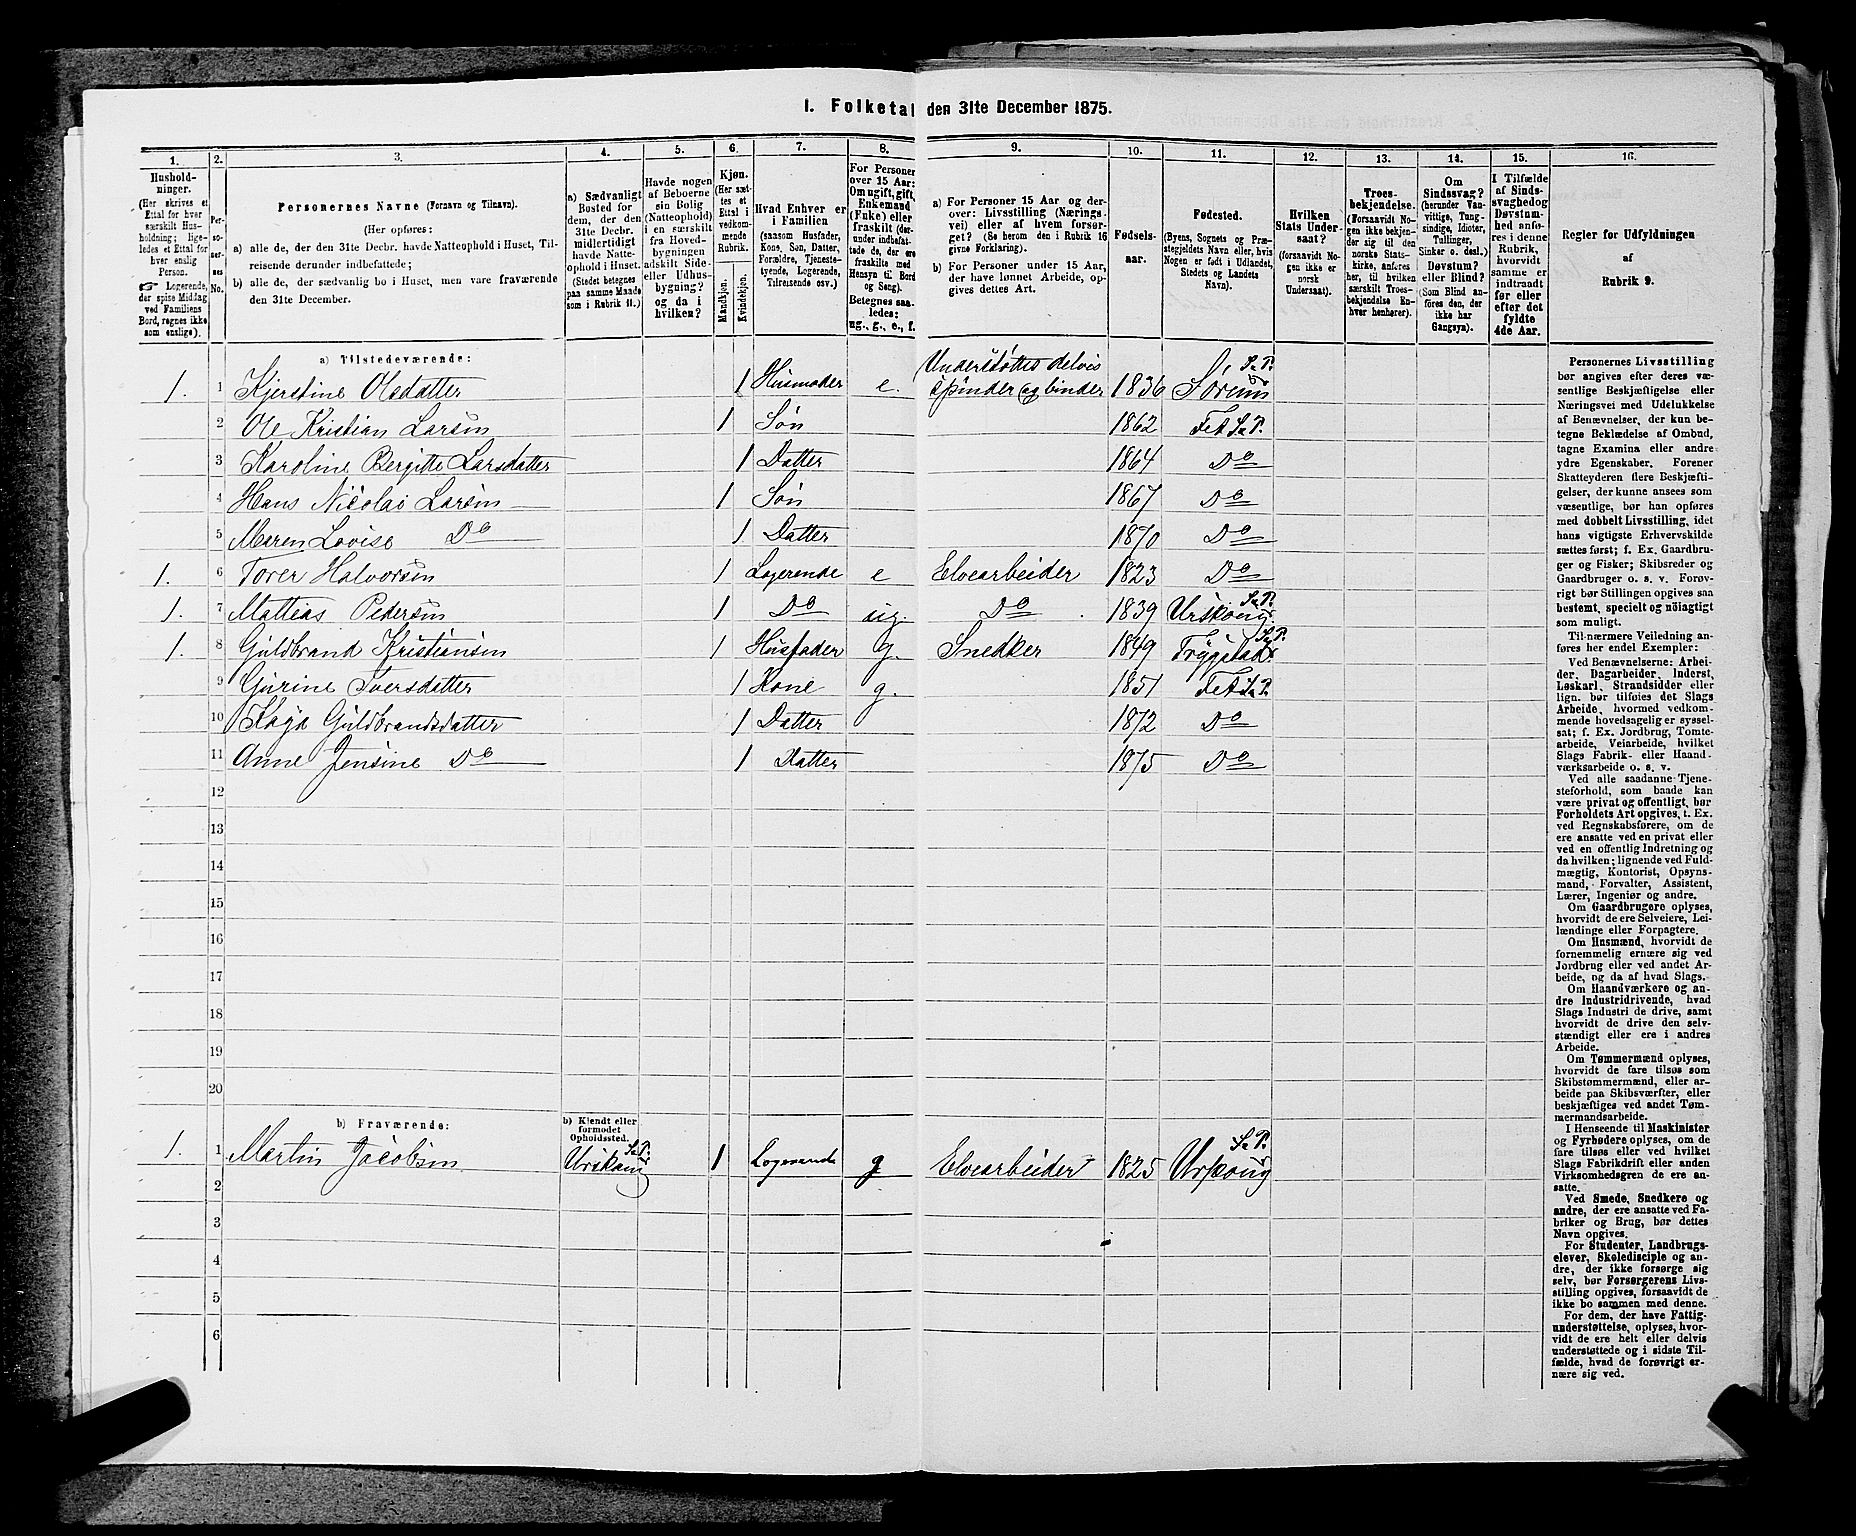 I. Folketal den 31te December 1875.
1. 2. 3. 4. 5. 6. 7. 8. 9. 10. 11. 12. 13. 14. 15. 16.
Hushold-
ninger.
(Her skrives et
Ettal for hver
særskilt Hus-
holdning; lige-
ledes et Ettal for
hver enslig
Person.
☞ Logerende,
der spise Middag
ved Familiens
Bord, regnes ikke
som enslige).
Per-
so-
ner-
nes
No.
Personernes Navne (Fornavn og Tilnavn).
(Her opføres:
a) alle de, der den 31te Decbr. havde Natteophold i Huset, Til-
reisende derunder indbefattede;
b) alle de, der sædvanlig bo i Huset, men vare fraværende
den 31te December.
a) Sædvanligt
Bosted for
dem, der den
31te Decbr.
midlertidigt
havde Natte-
ophold i Huset.
(Stedet betegnes
paa samme Maade
som i Rubrik 11.)
Havde nogen
af Beboerne
sin Bolig
(Natteophold)
i en særskilt
fra Hoved-
bygningen
adskilt Side-
eller Udhus-
bygning?
og da i
hvilken?
Kjøn.
(Her sæt-
tes et
Ettal i
vedkom-
mende
Rubrik.
Mandkjøn.
Kvindekjøn.
Hvad Enhver er
i Familien
(saasom Husfader,
Kone, Søn, Datter,
Forældre, Tjeneste-
tyende, Logerende,
Tilreisende osv.)
For Personer
over 15 Aar:
Om ugift, gift,
Enkemand
(Enke) eller
fraskilt (der-
under indbefat-
tede de, der ere
fraskilte med
Hensyn til Bord
og Seng).
Betegnes saa-
ledes:
ug., g., e., f.
a) For Personer 15 Aar og der-
over: Livsstilling (Nærings-
vei) eller af hvem forsør-
get? (Se herom den i Rubrik 16
givne Forklaring).
b) For Personer under 15 Aar,
der have lønnet Arbeide, op-
gives dettes Art.
Fødsels-
aar.
Fødested.
(Byens, Sognets og Præ-
stegjeldets Navn eller, hvis
Nogen er født i Udlandet,
Stedets og Landets
Navn).
Hvilken
Stats Under-
saat?
(forsaavidt No-
gen ikke er
norsk
Undersaat).
Troes-
bekjendelse.
(Forsaavidt No-
gen ikke bekjen-
der sig til den
norske Stats-
kirke, anføres
her, til hvilken
særskilt Troes-
bekjendelse En-
hver henhører).
Om
Sindssvag?
(herunder Van-
vittige, Tung-
sindige, Idioter,
Tullinger,
Sinker o. desl.)
Døvstum?
eller Blind?
(Som Blind an-
føres den, der
ikke har
Gangsyn).
I Tilfælde
af Sinds-
svaghed og
Døvstum-
hed anfø-
res i denne
Rubrik,
hvorvidt
samme er
indtraadt
før eller
efter det
fyldte
4de Aar.
Regler for Udfyldningen
af
Rubrik 9.
a) Tilstedeværende:
1. 1 Kjerstine Olsdatter 1 Husmoder e. Understøttes delvis spinder og binder 1836 Sørum S. P.
2 Ole Kristian Larsen 1 Søn 1862 Fet S. P.
3 Karoline Bergitte Larsdatter 1 Datter 1864 Do
4 Hans Nicolai Larsen 1 Søn 1867 Do
5 Maren Lovise Do 1 Datter 1870 Do
1. 6 Torer Halvorsen 1 Logerende e Elvearbeider 1823 Do
1. 7 Mattias Pedersen 1 Do ug. Do 1839 Urskoug S. P.
1. 8 Guldbrand Kristiansen 1 Husfader g. Snedker 1849 Trygstad S. P.
9 Gurine Iversdatter 1 Kone g. 1851 Fet S. P.
10 Kaja Guldbrandsdatter 1 Datter 1872 Do
11 Anne Jensine Do 1 Datter 1875 Do
12
13
14
15
16
17
18
19
20
b) Fraværende: b) Kjendt eller
formodet
Opholdssted.
1. 1 Martin Jacobsen Urskoug S. P. 1 Logerende g Elvearbeider 1825 Urskoug S. P.
2
3
4
5
6
Personernes Livsstilling
bør angives efter deres væ-
sentlige Beskjæftigelse eller
Næringsvei med Udelukkelse
af Benævnelser, der kun be-
tegne Beklædelse af Ombud,
tagne Examina eller andre
ydre Egenskaber. Forener
Skatteyderen flere Beskjæfti-
gelser, der kunne ansees som
væsentlige, bør han opføres
med dobbelt Livsstilling, idet
hans vigtigste Erhvervskilde
sættes først; f. Ex. Gaardbru-
ger og Fisker; Skibsreder og
Gaardbruger o. s. v. Forøv-
rigt bør Stillingen opgives saa
bestemt, specielt og nøiagtigt
som muligt.
Til nærmere Veiledning an-
føres her endel Exempler:
Ved Benævnelserne: Arbei-
der, Dagarbeider, Inderst,
Løskarl, Strandsidder eller
lign. bør tilføies det Slags
Arbeide, hvormed vedkom-
mende hovedsagelig er syssel-
sat; f. Ex. Jordbrug, Tomte-
arbeide, Veiarbeide, hvilket
Slags Fabrik- eller Haand-
værksarbeide o. s. v.
Ved alle saadanne Tjene-
steforhold, som baade kan
være privat og offentligt, bør
Forholdets Art opgives, t. Ex.
ved Regnskabsførere, om de
ere ansatte ved en privat eller
ved en offentlig Indretning og
da hvilken; lignende ved Fuld-
mægtig, Kontorist, Opsyns-
mand, Forvalter, Assistent,
Lærer, Ingeniør og andre.
Om Gaardbrugere oplyses,
hvorvidt de ere Selveiere, Lei-
lændinge eller Forpagtere.
Om Husmænd, hvorvidt de
fornemmelig ernære sig ved
Jordbrug eller ved andet Ar-
beide, og da af hvad Slags.
Om Haandværkere og an-
dre Industridrivende, hvad
Slags Industri de drive, samt
hvorvidt de drive den selv-
stændigt eller ere i andres
Arbeide.
Om Tømmermænd oplyses,
hvorvidt de fare tilsøs som
Skibstømmermænd, eller ar-
beide paa Skibsværfter, eller
beskjæftiges ved andet Tøm-
mermandsarbeide.
I Henseende til Maskinister
og Fyrbødere oplyses, om de
fare tilsøs eller ved hvilket
Slags Fabrikdrift eller anden
Virksomhedsgren de ere an-
satte.
Ved Smede, Snedkere og
andre, der ere ansatte ved Fa-
briker og Brug, bør dettes
Navn opgives.
For Studenter, Landbrugs-
elever, Skoledisciple og an-
dre, der ikke forsørge sig
selv, bør Forsørgerens Livs-
stilling opgives, forsaavidt de
ikke bo sammen med denne.
For dem, der have Fattig-
understøttelse, oplyses, hvor-
vidt de ere helt eller delvis
understøttede og i sidste Til-
fælde, hvad de forøvrigt er-
nære sig ved.